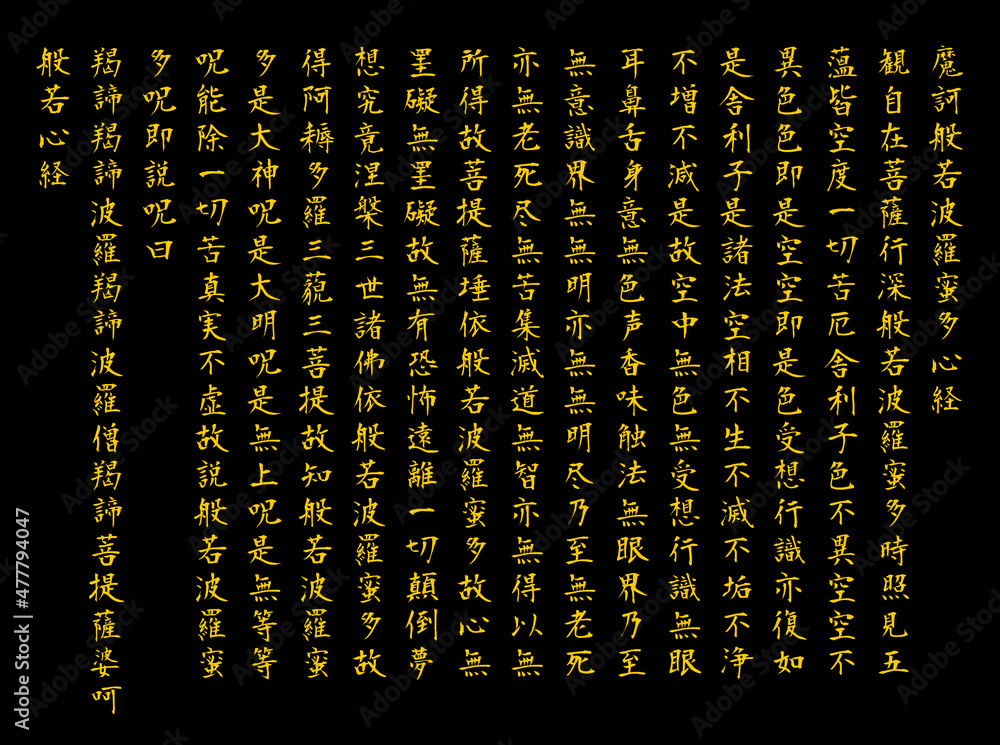 魔訶般若波羅蜜多心経
観自在菩薩行深般若波羅蜜多時照見五
薀皆空度一切苦厄舎利子色不異空空不
異色色即是空空即是色受想行識亦復如
是舎利子是諸法空相不生不滅不垢不浄
不増不減是故空中無色無受想行識無眼
耳鼻舌身意無色声香味触法無眼界乃至
無意識界無無明亦無無明尽乃至無老死
亦無老死尽無苦集滅道無智亦無得以無
所得故菩提薩埵依般若波羅蜜多故心無
罣礙無罣礙故無有恐怖遠離一切顛倒夢
想究竟涅槃三世諸佛依般若波羅蜜多故
得阿耨多羅三藐三菩提故知般若波羅蜜
多是大神呪是大明呪是無上呪是無等等
呪能除一切苦真実不虚故説般若波羅蜜
多呪即説呪曰
羯諦羯諦波羅羯諦波羅僧羯諦菩提薩婆呵
般若心経
Adobe Stock | #477794047